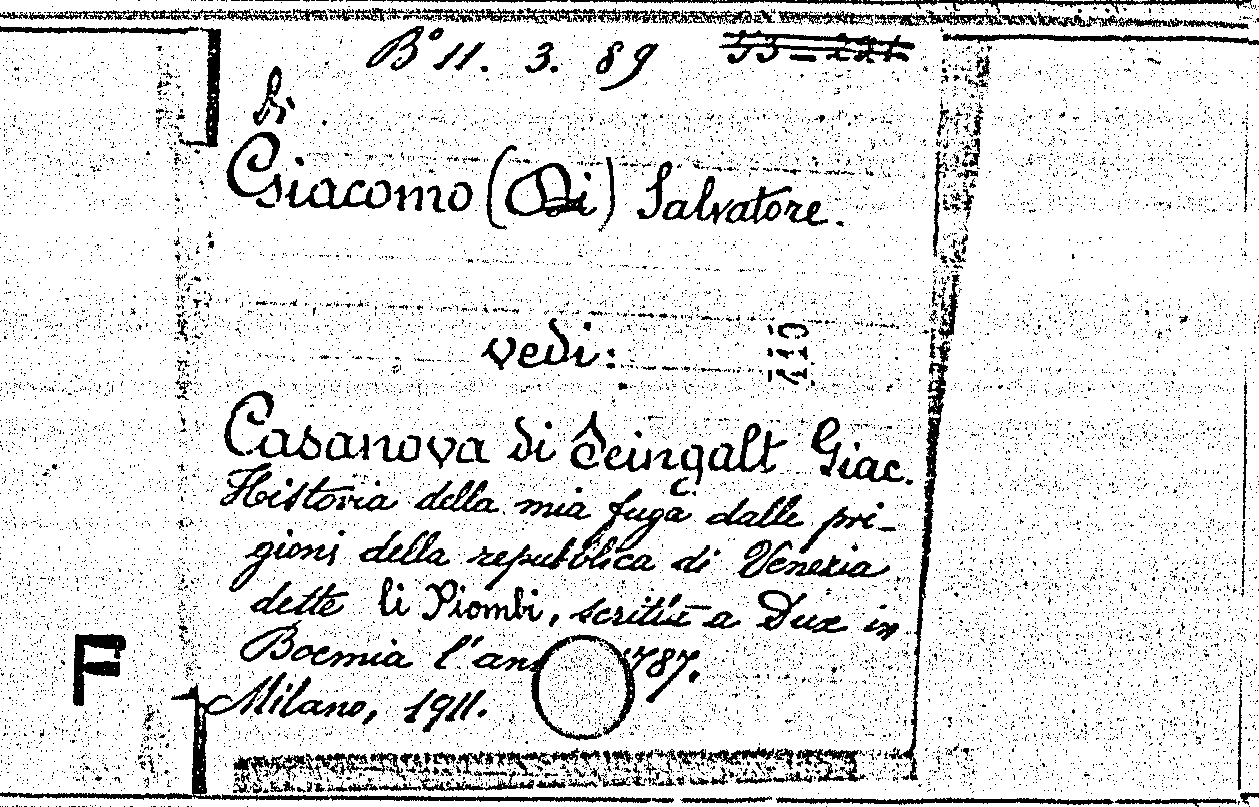 B° 11. 3. 89
Di
Giacomo (Di) Salvatore.
vedi:
110
Casanova di Seingalt Giac.
Historia della mia fuga dalle pri-
gioni della repubblica di Venezia
dette li Piombi, scritta a Dux in
Boemia l'ann 787.
Milano, 1911.
F